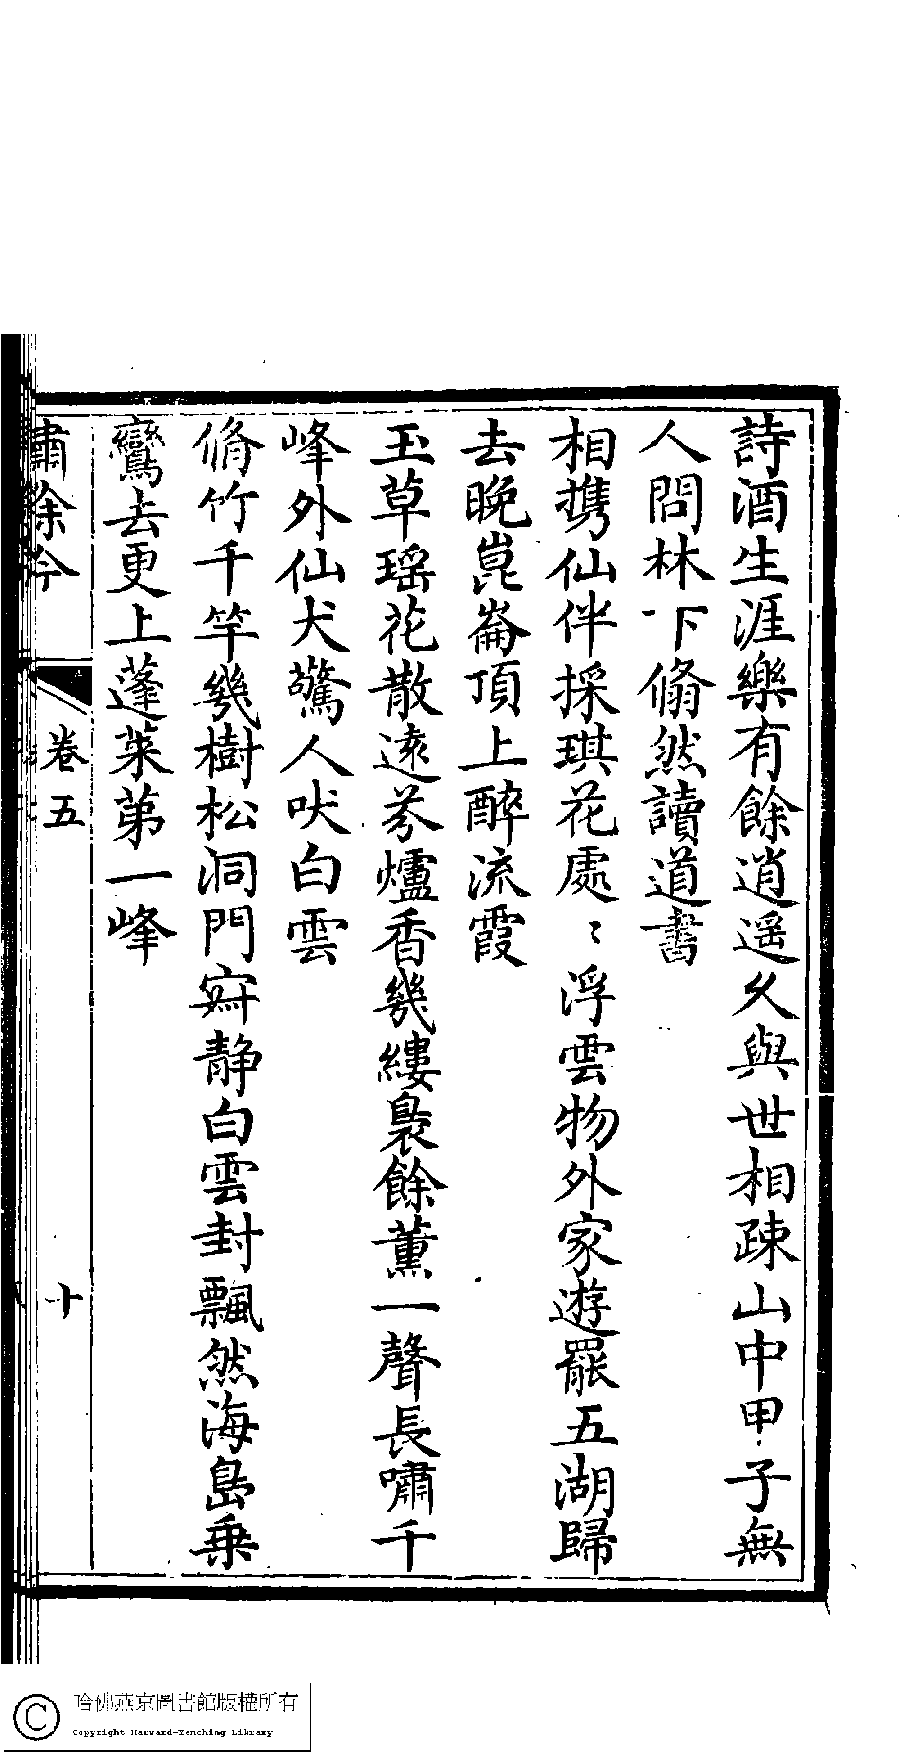 詩酒生涯樂有餘逍遥久與世相疎山中甲子無
人問林下翛然讀道書
相携仙伴採琪花處〻浮雲物外家遊罷五湖歸
去晚崑崙頂上醉流霞
玉草瑶花散遠芬爐香幾縷裊餘薰一聲長嘯千
峰外仙犬驚人吠白雲
脩竹千竿幾樹松洞門𡨴静白雲封飄然海島乗
鸞去更上蓬莱第一峰
嘯餘吟
卷五
十
哈佛燕京圖書館版權所有
Copyright Harvard-Yenching Library